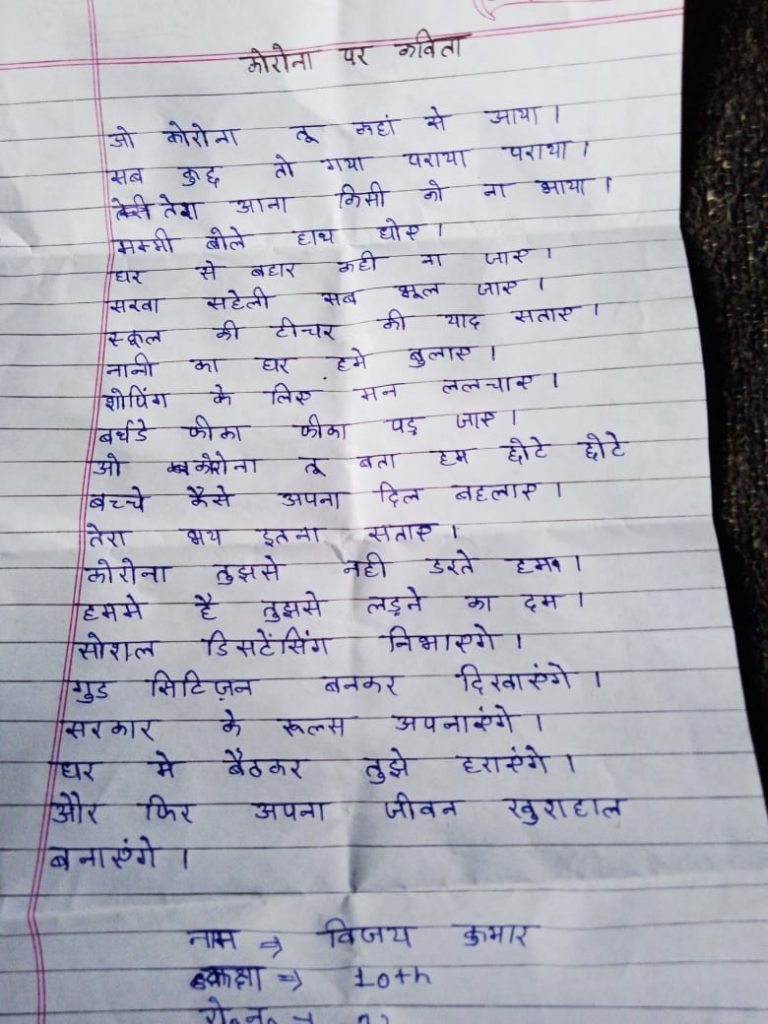 कोरोना पर कविता
ओ कोरोना तू कहां से आया ।
सब कुछ तो गया पराया पराया ।
तेरा आना किसी को ना भाया ।
मम्मी बोले हाथ धोए ।
घर से बहार कही ना जाए ।
सखा सहेली सब भूल जाए ।
स्कूल की टीचर की याद सताए ।
नानी का घर हमे बुलाए ।
शोपिंग के लिए मन ललचाए ।
बर्थडे फीका फीका पड़ जाए ।
ओ कोरोना तू बता हम छोटे छोटे
बच्चे कैसे अपना दिल बहलाए ।
तेरा भय इतना सताए ।
कोरोना तुझसे नही डरते हम ।
हममे है तुझसे लड़ने का दम ।
सोशल डिसटेंसिंग निभाएगे ।
गुड सिटिज़न बनकर दिखाएंगे ।
सरकार के रूल्स अपनाएंगे ।
घर मे बैठकर तुझे हराएंगे ।
और फिर अपना जीवन खुशहाल
बनाएंगे ।
नाम ⇒ विजय कुमार
कक्षा ⇒ 10th
रो॰न॰ →